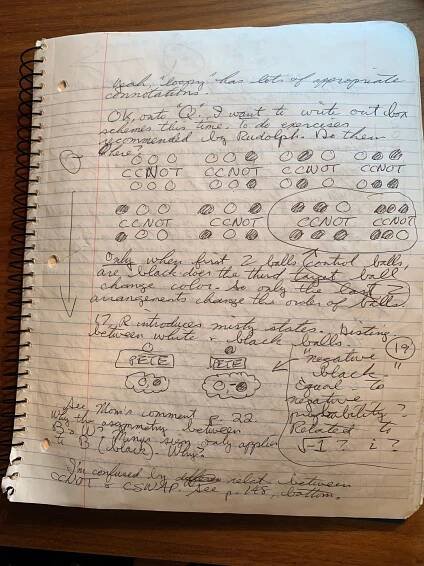 Yeah, "loopy" has lots of appropriate
connotations.
Ok, onto "Q". I want to write out box
schemes this time, to do exercises
recommended by Rudolph. Do them
here:
CCNOT CCNOT CCNOT CCNOT
CCNOT CCNOT CCNOT CCNOT
Only when first 2 balls, control balls,
are black does the third target ball
change color. So only the last 2
arrangements change the order of balls.
R introduces misty states. Disting
between white + black balls.
19
PETE PETE
"negative
black"
Equal to
negative
probability?
Related to
√-1? i?
See Mom's comment p. 22.
Why the asymmetry between
B + W? Minus sign only applies
to B (black). Why?
I'm confused by relat. between
CCNOT & CSWAP. See p. 148, bottom.